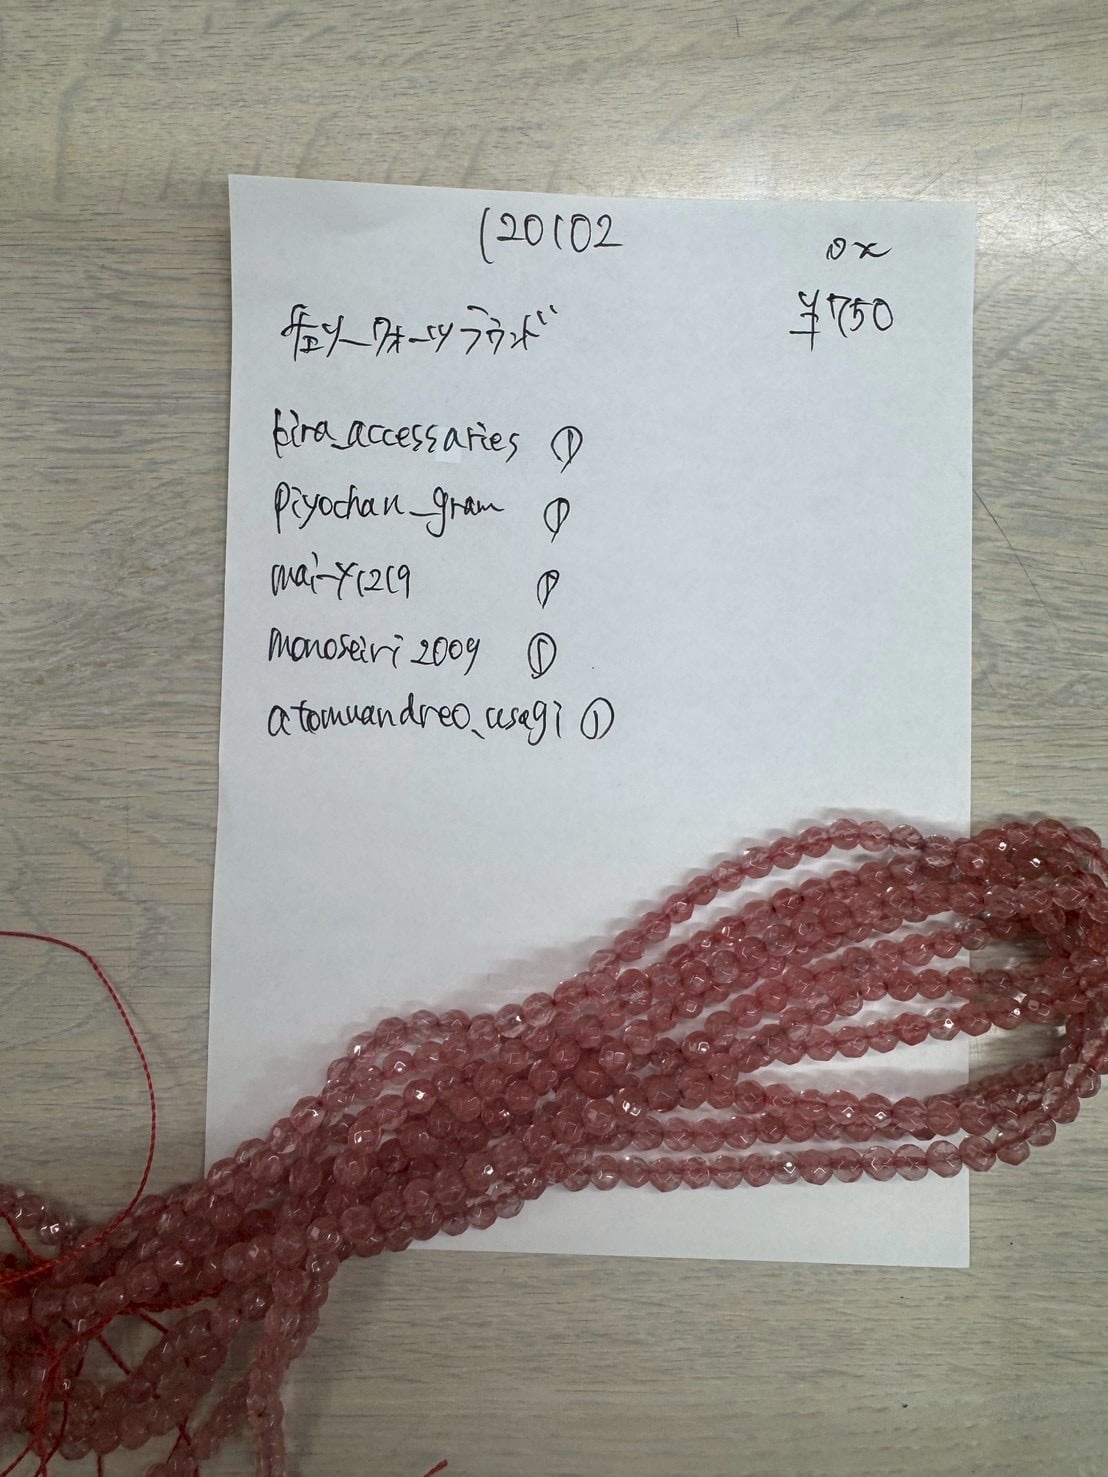 120102
ox
¥750
チェリークォーツラウンド
kira_accessaries ①
piyochan_gram ①
mai-y1219 ①
monoseiri 2009 ①
atomuandreo_usagi ①